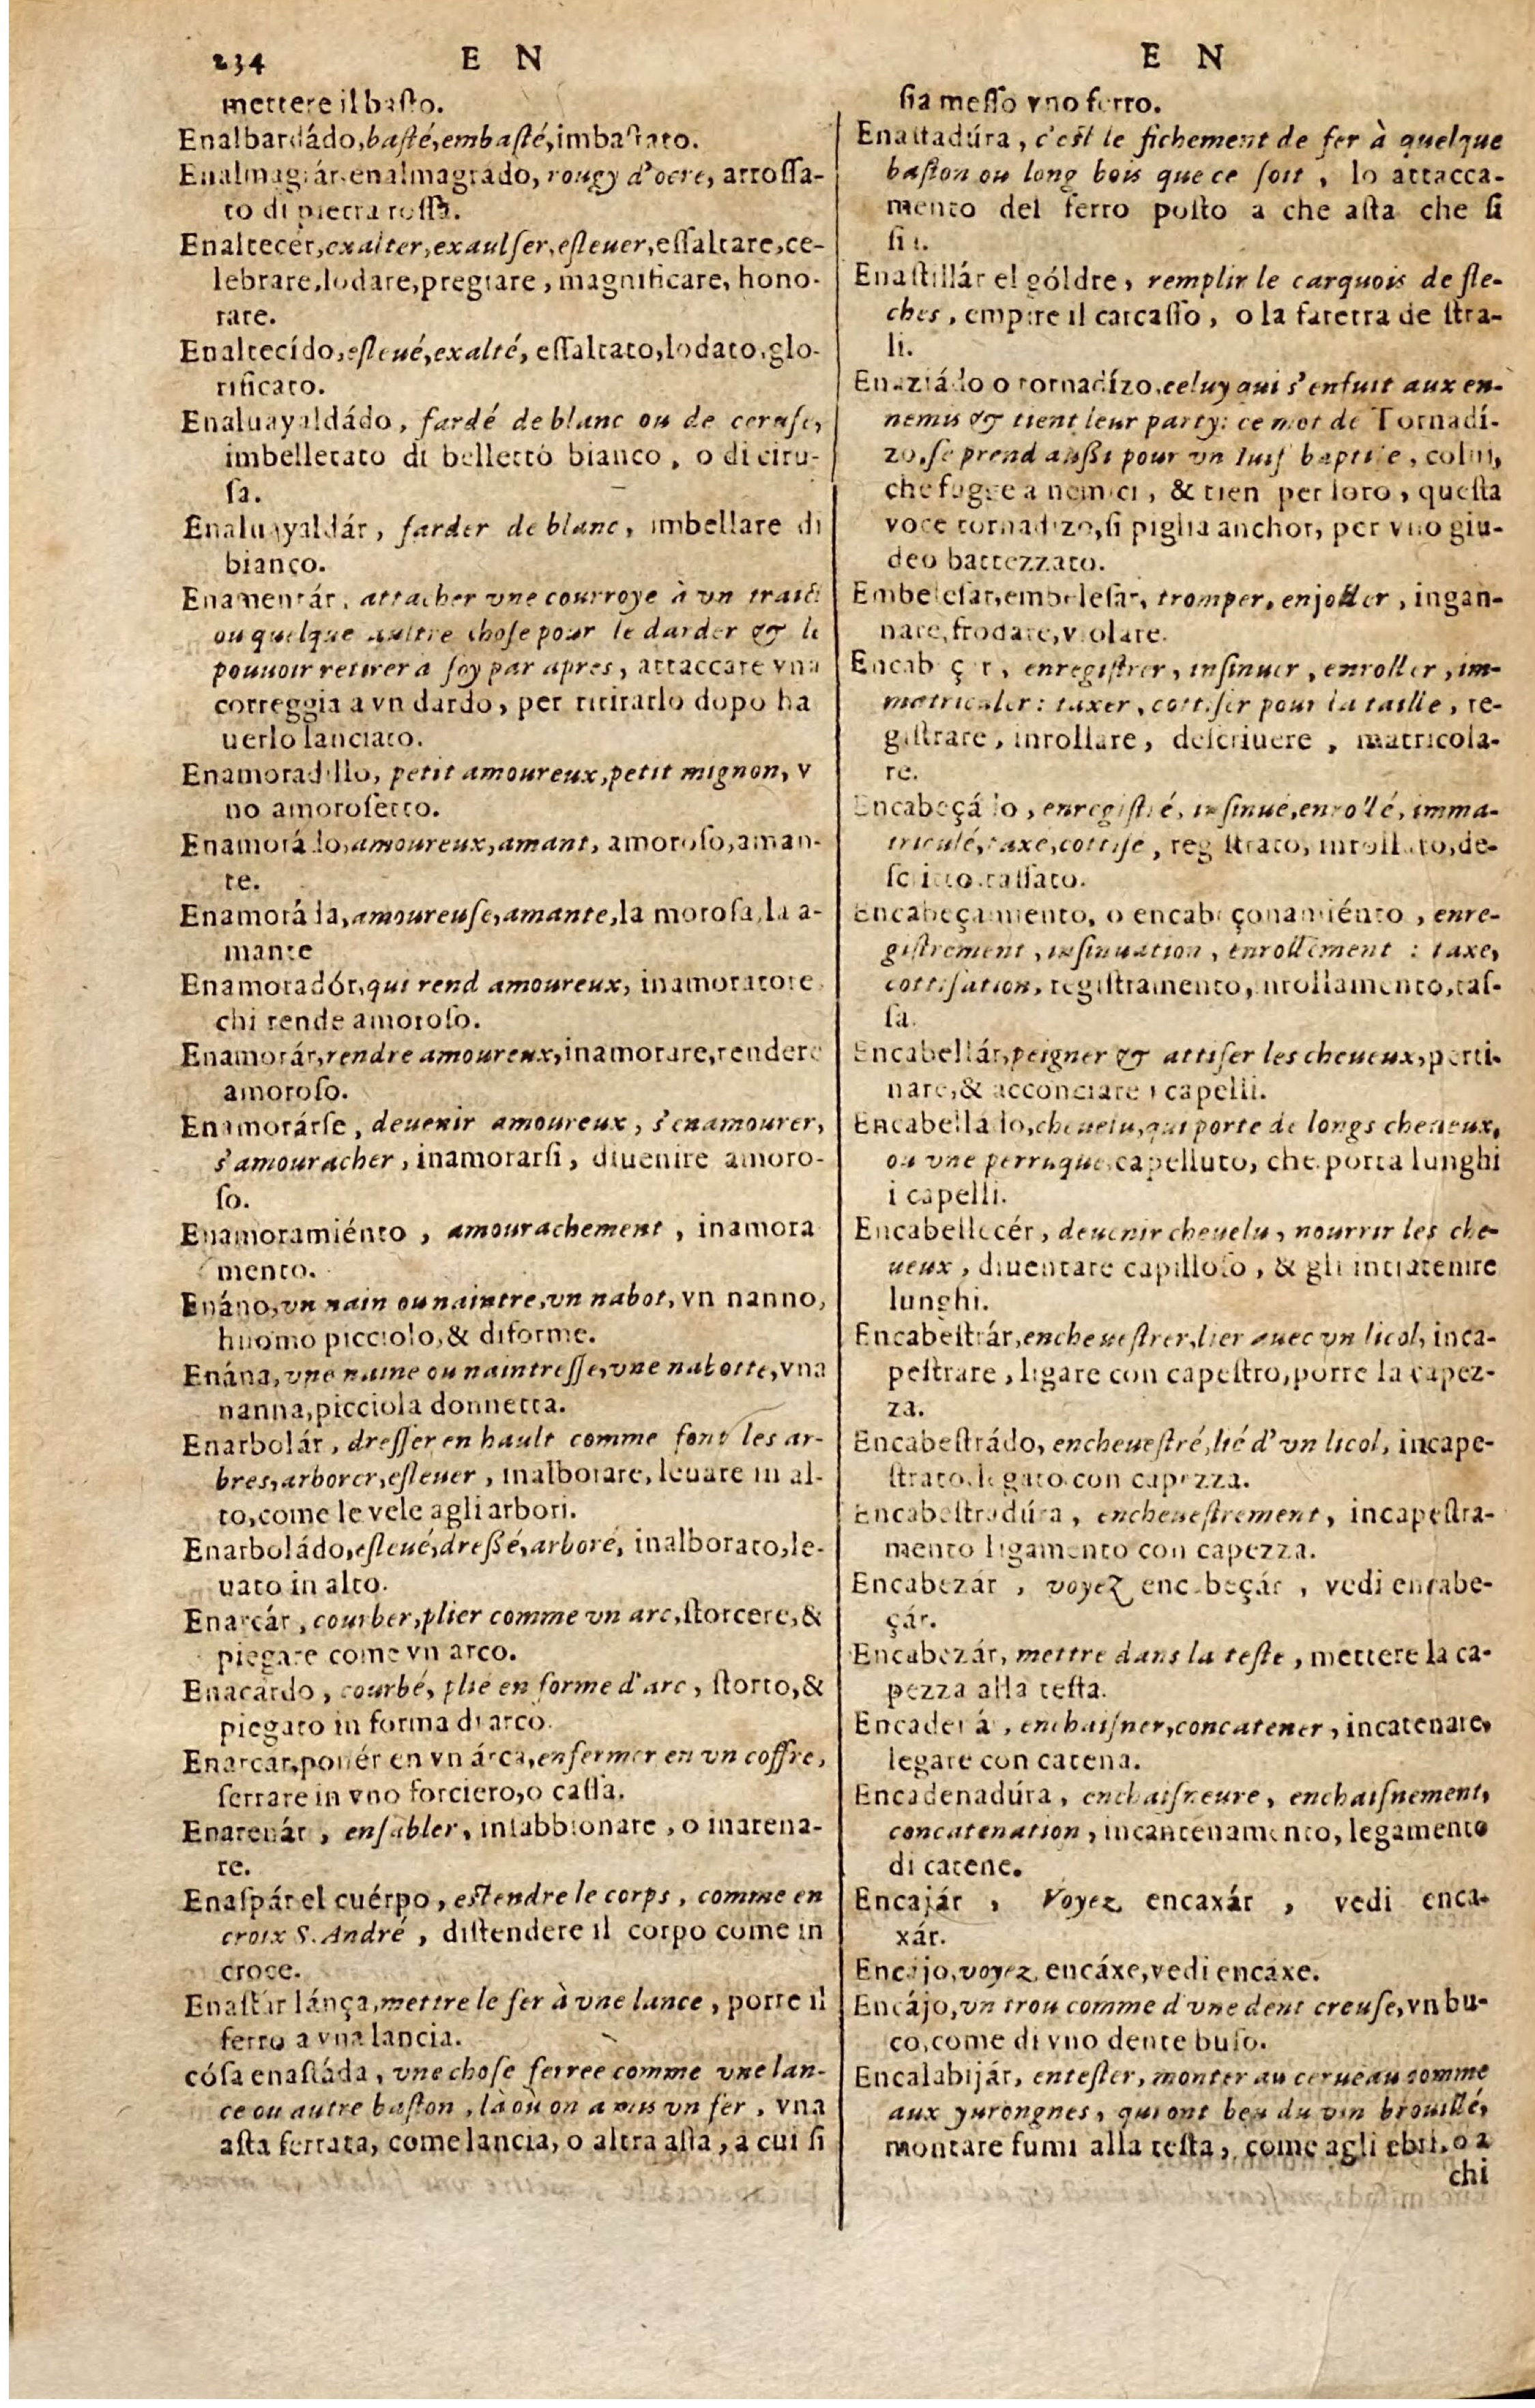 234 E N
mettere il basto.
Enalbardádo, basté, embasté, imbastato.
Enalmagrár, enalmagrado, rougy d'ocre, arrossa-
to di pietra rossa.
Enaltecér, exalter, exaulser, esleuer, essaltare, ce-
lebrare, lodare, pregiare, magnificare, hono-
rare.
Enaltecído, esleué, exalté, essaltato, lodato, glo-
rificato.
Enaluayaldádo, fardé de blanc ou de ceruse,
imbellettato di belletto bianco, o di ciru-
sa.
Enaluayaldár, farder de blanc, imbellare di
bianco.
Enamentár, attacher vne courroye à vn traict
ou quelque aultre chose pour le darder & le
pouuoir retirer a soy par apres, attaccare vna
correggia a vn dardo, per ritirarlo dopo ha
uerlo lanciato.
Enamoradillo, petit amoureux, petit mignon, v
no amorosetto.
Enamorádo, amoureux, amant, amoroso, aman-
te.
Enamoráda, amoureuse, amante, la morosa, la a-
mante
Enamoradór, qui rend amoureux, inamoratore
chi rende amoroso.
Enamorár, rendre amoureux, inamorare, rendere
amoroso.
Enamorárse, deuenir amoureux, s'enamourer,
s'amouracher, inamorarsi, diuenire amoro-
so.
Enamoramiénto, amourachement, inamora
mento.
Enáno, vn nain ou naintre, vn nabot, vn nanno,
huomo picciolo, & diforme.
Enána, vne naine ou naintresse, vne nabotte, vna
nanna, picciola donnetta.
Enarbolár, dresser en hault comme font les ar-
bres, arborer, esleuer, inalborare, leuare in al-
to, come le vele agli arbori.
Enarboládo, esleué, dressé, arboré, inalborato, le-
uato in alto.
Enarcár, courber, plier comme vn arc, storcere, &
piegare come vn arco.
Enacardo, courbé, plié en forme d'arc, storto, &
piegato in forma di arco.
Enarcar, ponér en vn árca, enfermer en vn coffre,
serrare in vno forciero, o cassa.
Enarenár, ensabler, insabbionare, o inarena-
re.
Enaspár el cuérpo, estendre le corps, comme en
croix S. André, distendere il corpo come in
croce.
Enastar lánça, mettre le fer à vne lance, porre il
ferro a vna lancia.
cósa enastáda, vne chose ferree comme vne lan-
ce ou autre baston, là où on a mis vn fer, vna
asta ferrata, come lancia, o altra asta, a cui si
E N
sia messo vno ferro.
Enastadúra, c'est le fichement de fer à quelque
baston ou long bois que ce soit, lo attacca-
mento del ferro posto a che asta che si
sia.
Enastillár el góldre, remplir le carquois de fle-
ches, empire il carcasso, o la faretra de stra-
li.
Enaziádo o tornadízo, celuy qui s'enfuit aux en-
nemis & tient leur party: ce mot de Tornadí-
zo, se prend aussi pour vn Iuif baptisé, colui,
che fugge a nemici, & tien per loro, questa
voce tornadizo, si piglia anchor, per vno giu-
deo battezzato.
Embelesar, embelesar, tromper, enjoller, ingan-
nare, frodare, violare.
Encabeçar, enregistrer, insinuer, enroller, im-
matriculer: taxer, cottiser pour la taille, re-
gistrare, inrollare, descriuere, matricola-
re.
Encabeçádo, enregistré, insinué, enrollé, imma-
triculé, taxé, cottisé, registrato, inrollato, de-
scritto, tassato.
Encabeçamiento, o encabeçonamiénto, enre-
gistrement, insinuation, enrollement: taxe,
cottisation, registramento, inrollamento, tas-
sa.
Encabellár, peigner & attifer les cheueux, petti-
nare, & acconciare i capelli.
Encabelládo, cheuelu, qui porte de longs cheueux,
ou vne perruque, capelluto, che porta lunghi
i capelli.
Encabellecér, deuenir cheuelu, nourrir les che-
ueux, diuentare capilloso, & gli intratenire
lunghi.
Encabestrár, encheuestrer, lier auec vn licol, inca-
pestrare, ligare con capestro, porre la capez-
za.
Encabestrádo, encheuestré, lié d'vn licol, incape-
strato, legato con capezza.
Encabestradúra, encheuestrement, incapestra-
mento ligamento con capezza.
Encabezár, voyez encabeçár, vedi encabe-
çár.
Encabezár, mettre dans la teste, mettere la ca-
pezza alla testa.
Encadenár, enchaisner, concatener, incatenare,
legare con catena.
Encadenadúra, enchaisneure, enchaisnement,
concatenation, incantenamento, legamento
di catene.
Encajár, Voyez encaxár, vedi enca-
xár.
Encajo, voyez encáxe, vedi encaxe.
Encájo, vn trou comme d'vne dent creuse, vn bu-
co, come di vno dente buso.
Encalabijár, entester, monter au cerueau comme
aux yurongnes, qui ont beu du vin brouillé,
montare fumi alla testa, come agli ebri, o a
chi